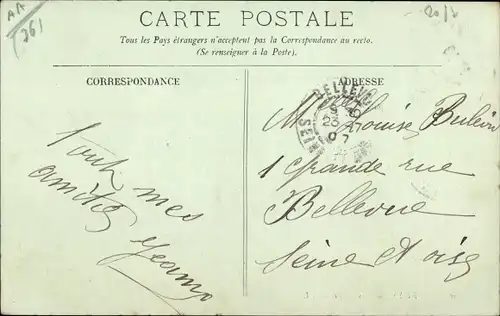 AA
761
CARTE POSTALE
Tous les Pays étrangers n'acceptent pas la Correspondance au recto.
(Se renseigner à la Poste).
CORRESPONDANCE
ADRESSE
Toutes mes
amitiés
Jeanne
BELLEVUE
SEINE
Louise
1 grande rue
Bellevue
Seine et Oise